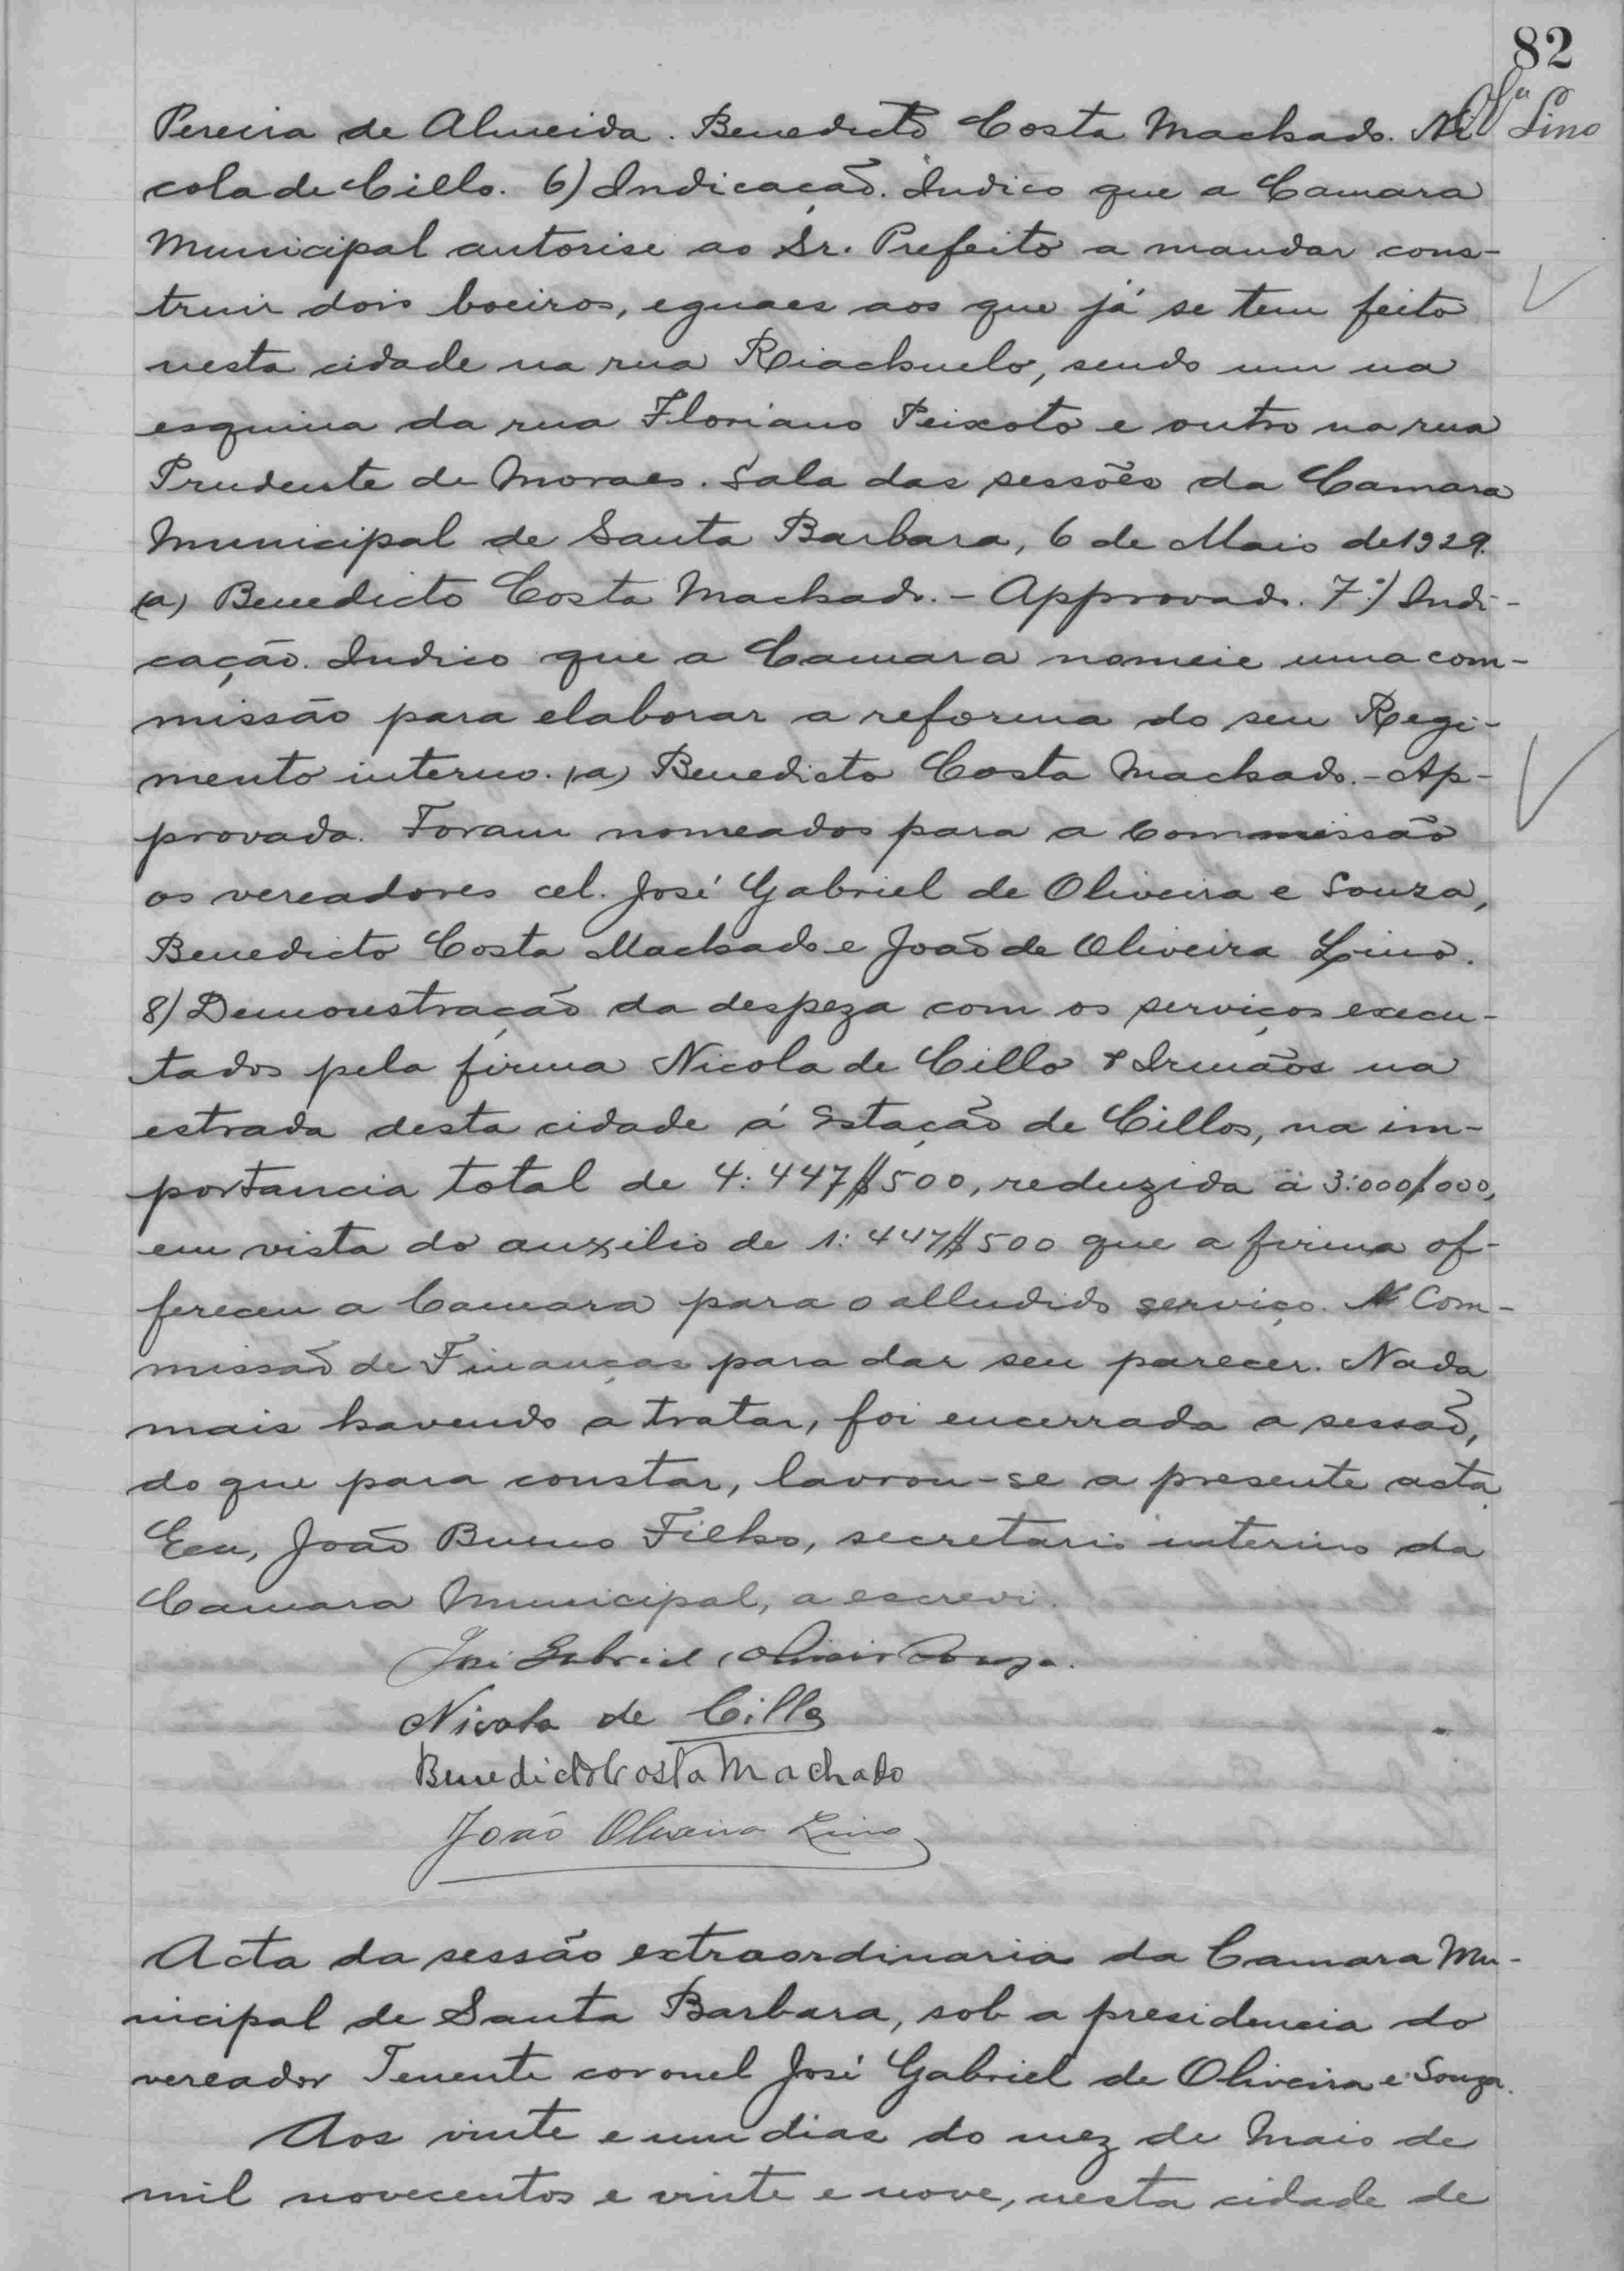 82
Lino
Pereira de Almeida. Benedicto Costa Machado. Ni
cola de Cillo. 6) Indicação. Indico que a Camara
Municipal autorise ao Sr. Prefeito a mandar cons-
truir dois boeiros, eguaes aos que já se tem feito
nesta cidade na rua Riachuelo, sendo um na
esquina da rua Floriano Peixoto e outro na rua
Prudente de Moraes. Sala das sessões da Camara
Municipal de Santa Barbara, 6 de Maio de 1929.
(a) Benedicto Costa Machado. - Approvado. 7º) Indi-
cação. Indico que a Camara nomeie uma com-
missão para elaborar a reforma do seu Regi-
mento interno. (a) Benedicto Costa Machado. - Ap-
provada. Foram nomeados para a Commissão
os vereadores cel. José Gabriel de Oliveira e Souza,
Benedicto Costa Machado e João de Oliveira Lino.
8) Demonstração da despeza com os serviços execu-
tados pela firma Nicola de Cillo & Irmãos na
estrada desta cidade á Estação de Cillos, na im-
portancia total de 4:447$500, reduzida a 3:000$000,
em vista do auxilio de 1:447$500 que a firma of-
fereceu a Camara para o alludido serviço. A Com-
missão de Finanças para dar seu parecer. Nada
mais havendo a tratar, foi encerrada a sessão,
do que para constar, lavrou-se a presente acta.
Eeu, João Bueno Filho, secretario interino da
Camara Municipal, a escrevi.
José Gabriel Oliveira Souza.
Nicola de Cillo
Benedicto Costa Machado
João Oliveira Lino
Acta da sessão extraordinaria da Camara Mu-
nicipal de Santa Barbara, sob a presidencia do
vereador Tenente coronel José Gabriel de Oliveira e Souza.
Aos vinte e um dias do mez de Maio de
mil novecentos e vinte e nove, nesta cidade de